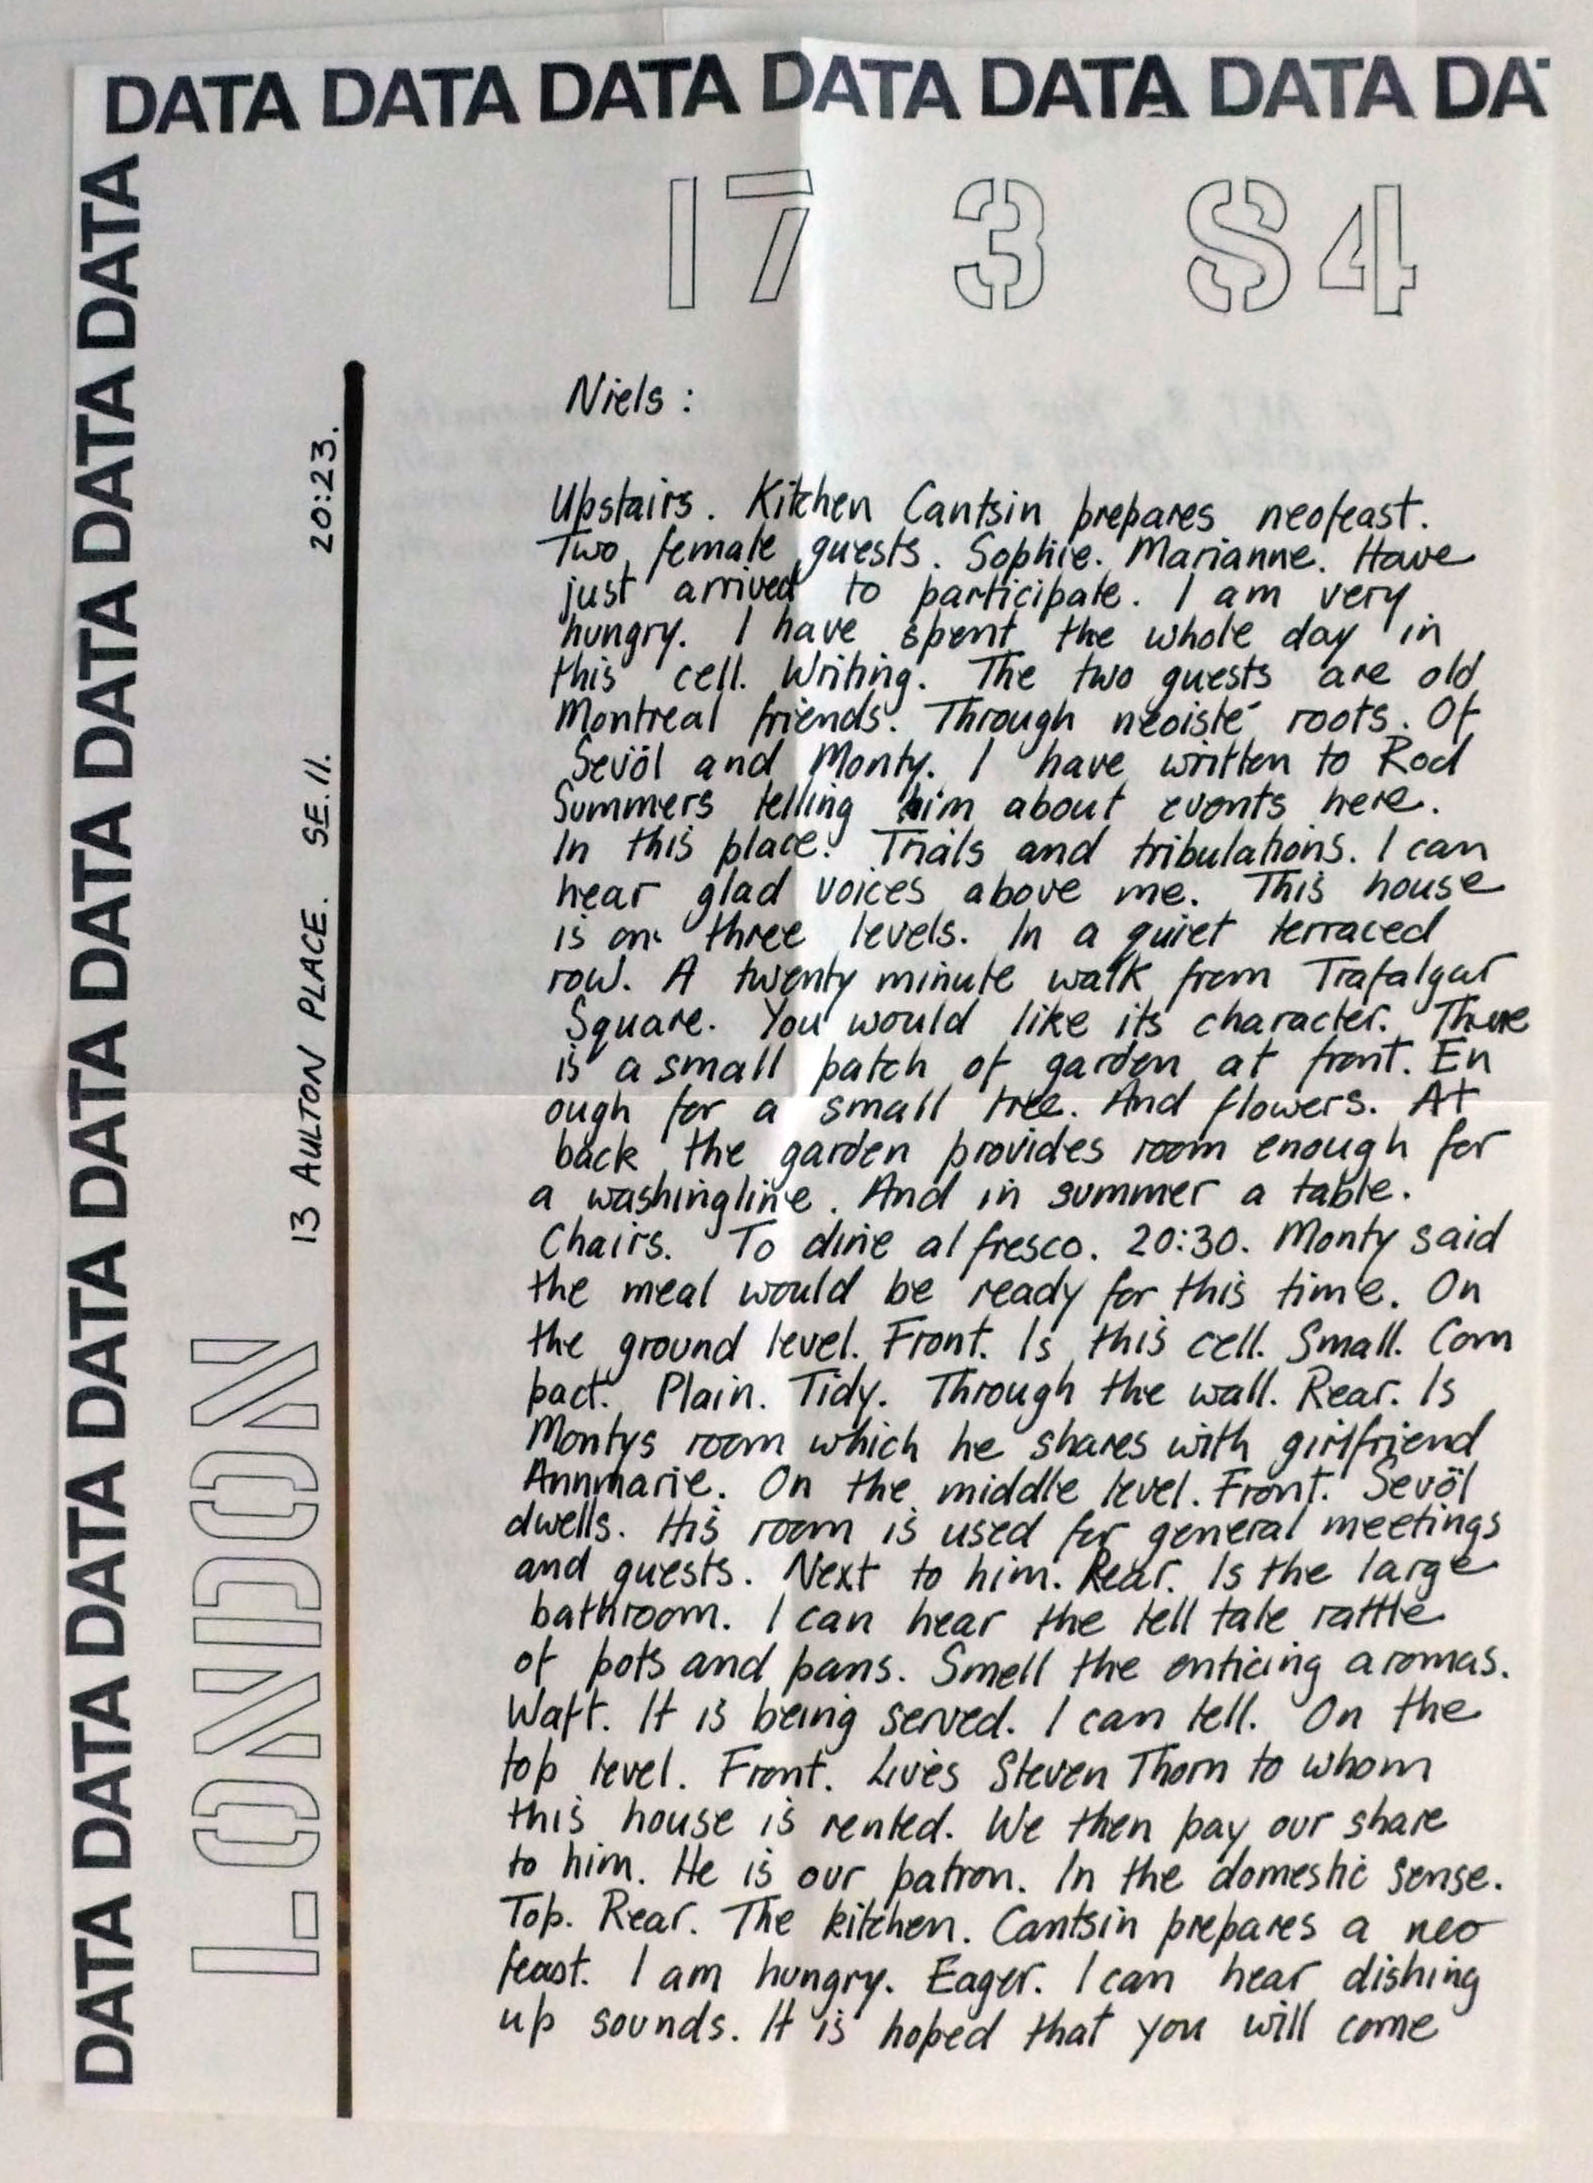 DATA DATA DATA DATA DATA DATA DA
DATA DATA DATA DATA DATA DATA DATA DATA DATA
17 3 84
LONDON
13 AULTON PLACE. SE.11. 20:23.
Niels :
Upstairs. Kitchen Cantsin prepares neofeast.
Two female guests. Sophie. Marianne. Have
just arrived to participate. I am very
hungry. I have spent the whole day in
this cell. Writing. The two guests are old
Montreal friends. Through néoiste roots. Of
Sevöl and Monty. I have written to Rod
Summers telling him about events here.
In this place. Trials and tribulations. I can
hear glad voices above me. This house
is on three levels. In a quiet terraced
row. A twenty minute walk from Trafalgar
Square. You would like its character. There
is a small patch of garden at front. En
ough for a small tree. And flowers. At
back the garden provides room enough for
a washingline. And in summer a table.
Chairs. To dine al fresco. 20:30. Monty said
the meal would be ready for this time. On
the ground level. Front. Is this cell. Small. Com
pact. Plain. Tidy. Through the wall. Rear. Is
Montys room which he shares with girlfriend
Annmarie. On the middle level. Front. Sevöl
dwells. His room is used for general meetings
and guests. Next to him. Rear. Is the large
bathroom. I can hear the tell tale rattle
of pots and pans. Smell the enticing aromas.
Waft. It is being served. I can tell. On the
top level. Front. Lives Steven Thorn to whom
this house is rented. We then pay our share
to him. He is our patron. In the domestic sense.
Top. Rear. The kitchen. Cantsin prepares a neo
feast. I am hungry. Eager. I can hear dishing
up sounds. It is hoped that you will come